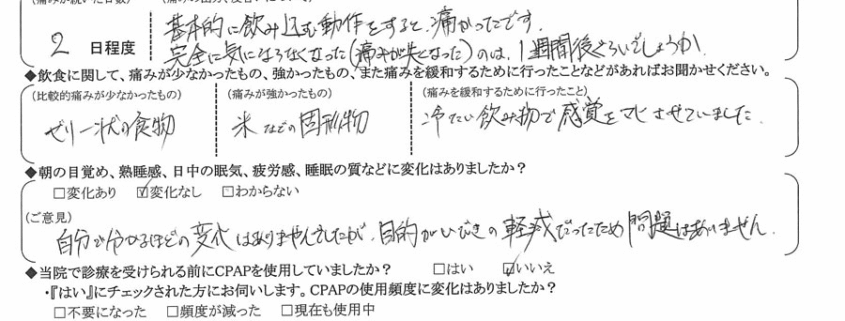 2 日程度
基本的に飲み込む動作をすると、痛かったです。
完全に気にならなくなった(痛みが失くなった)のは、1週間後ぐらいでしょうか。
◆飲食に関して、痛みが少なかったもの、強かったもの、また痛みを緩和するために行ったことなどがあればお聞かせください。
(比較的痛みが少なかったもの) (痛みが強かったもの) (痛みを緩和するために行ったこと)
ゼリー状の食物 米などの固形物 冷たい飲み物で感覚をマヒさせていました。
◆朝の目覚め、熟睡感、日中の眠気、疲労感、睡眠の質などに変化はありましたか?
□変化あり ☑変化なし □わからない
(ご意見)
自分で分かるほどの変化はありませんでしたが、目的がいびきの軽減だったため問題はありません。
◆当院で診療を受けられる前にCPAPを使用していましたか? □はい ☑いいえ
・『はい』にチェックされた方にお伺いします。CPAPの使用頻度に変化はありましたか?
□不要になった □頻度が減った □現在も使用中